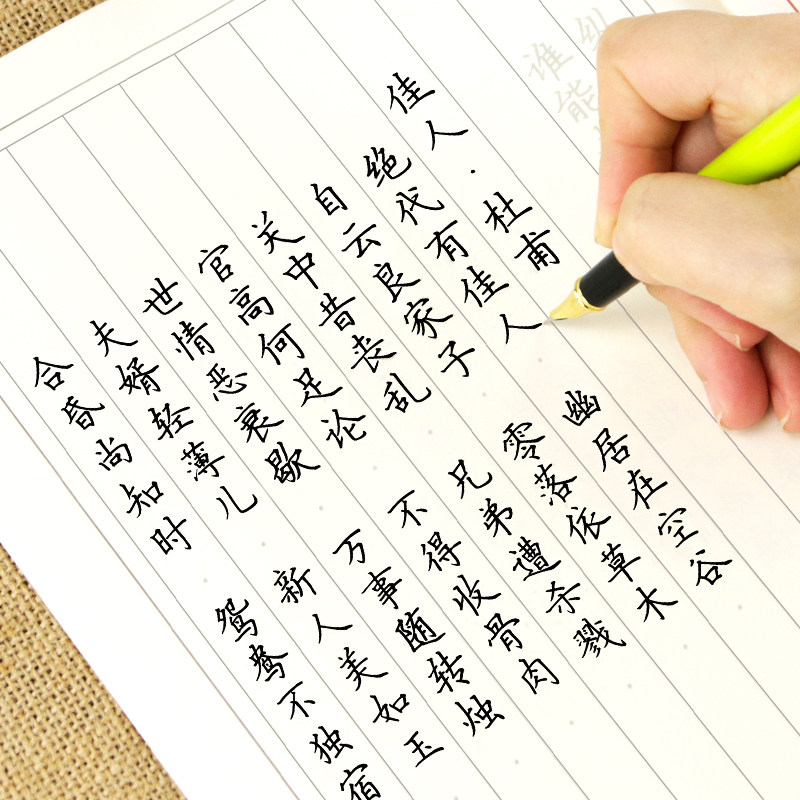 谁能
佳人·杜甫
绝代有佳人 幽居在空谷
自云良家子 零落依草木
关中昔丧乱 兄弟遭杀戮
官高何足论 不得收骨肉
世情恶衰歇 万事随转烛
夫婿轻薄儿 新人美如玉
合昏尚知时 鸳鸯不独宿